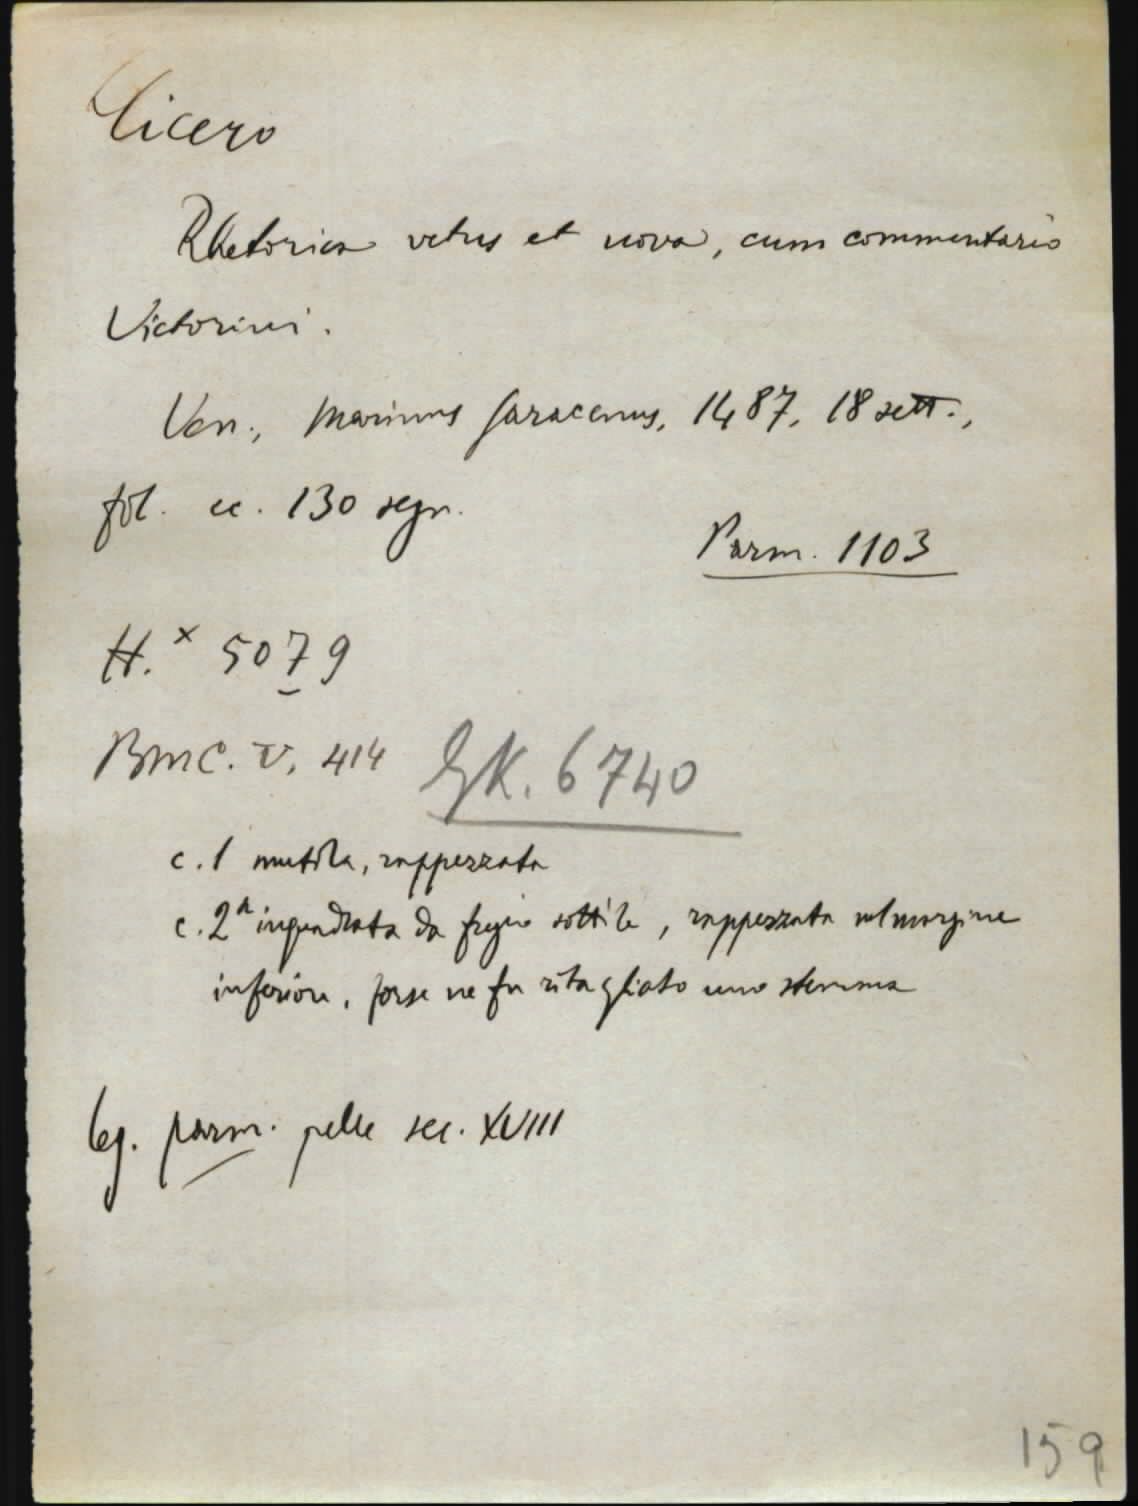 Cicero
Rhetorica vetus et nova, cum commentario
Victorini.
Ven., Marinus Saracenus, 1487, 18 sett.,
fol. cc. 130 segn.
Parm. 1103
H.x 5079
BMC. V, 414
GK. 6740
c. 1 mutila, rappezzata
c. 2a inquadrata da fregio sottile, rappezzata nel margine
inferiore, forse ne fu ritagliato uno stemma
leg. parm. pelle sec. XVIII
159